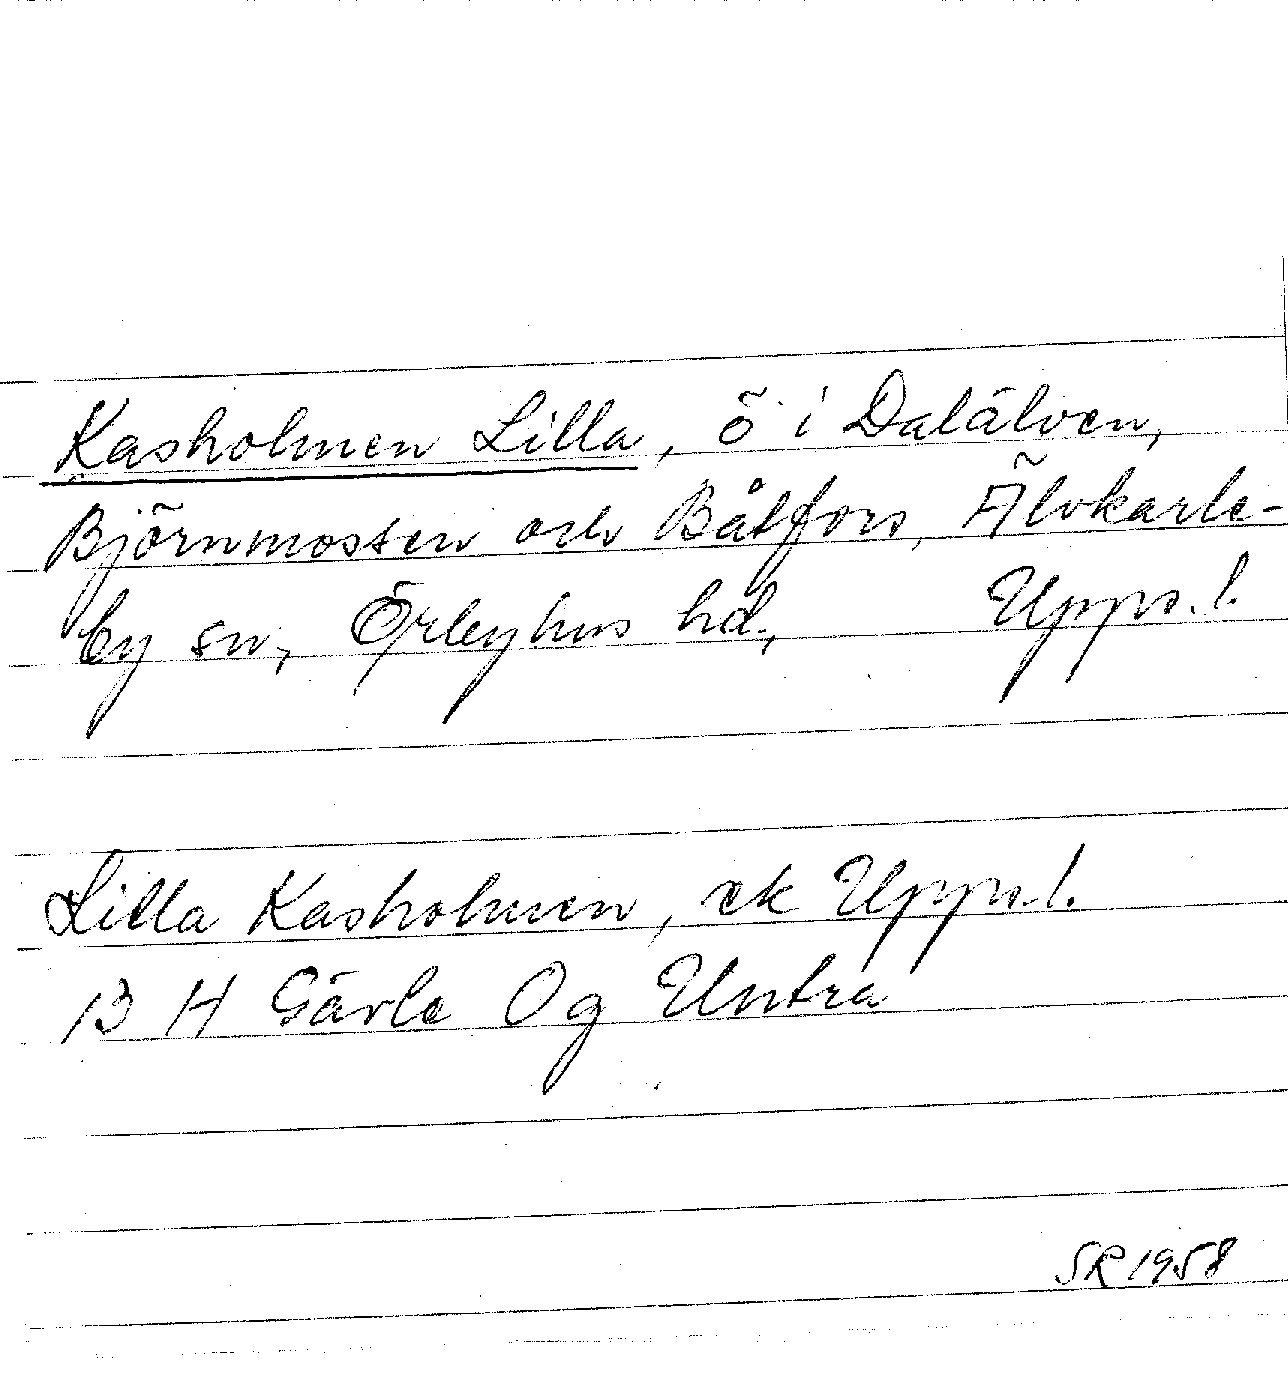 Kasholmen Lilla, ö i Dalälven,
Björnmossen och Båtfors, Älvkarle-
by sn, Örbyhus hd., Upps. l.
Lilla Kasholmen, ek Upps. l.
13 H Gävle Og Untra
SR 1958